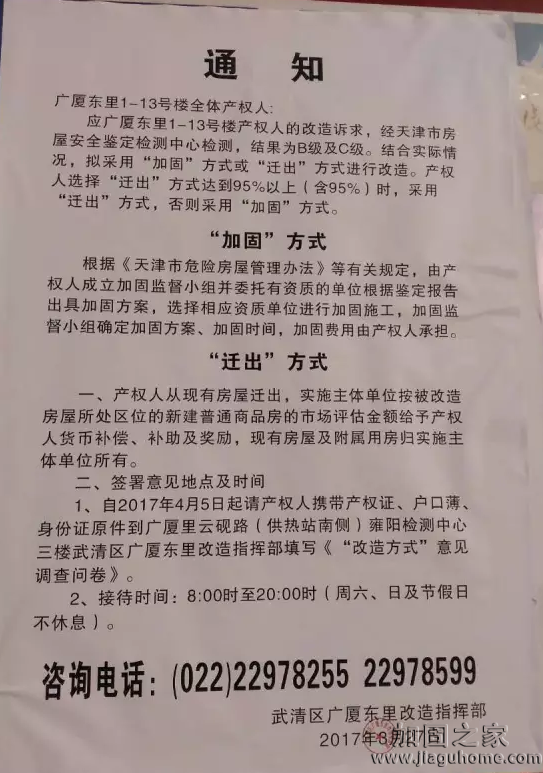 通知
广厦东里1-13号楼全体产权人:
应广厦东里1-13号楼产权人的改造诉求，经天津市房
屋安全鉴定检测中心检测，结果为B级及C级。结合实际情
况，拟采用“加固”方式或“迁出”方式进行改造。产权
人选择“迁出”方式达到95%以上（含95%）时，采用
“迁出”方式，否则采用“加固”方式。
“加固”方式
根据《天津市危险房屋管理办法》等有关规定，由产
权人成立加固监督小组并委托有资质的单位根据鉴定报告
出具加固方案，选择相应资质单位进行加固施工，加固监
督小组确定加固方案、加固时间，加固费用由产权人承担。
“迁出”方式
一、产权人从现有房屋迁出，实施主体单位按被改造
房屋所处区位的新建普通商品房的市场评估金额给予产权
人货币补偿、补助及奖励，现有房屋及附属用房归实施主
体单位所有。
二、签署意见地点及时间
1、自2017年4月5日起请产权人携带产权证、户口薄、
身份证原件到广厦里云砚路（供热站南侧）雍阳检测中心
三楼武清区广厦东里改造指挥部填写《“改造方式”意见
调查问卷》。
2、接待时间：8:00时至20:00时（周六、日及节假日
不休息）。
咨询电话：(022)22978255 22978599
武清区广厦东里改造指挥部
2017年3月27日
加固之家
www.jiaguhome.com